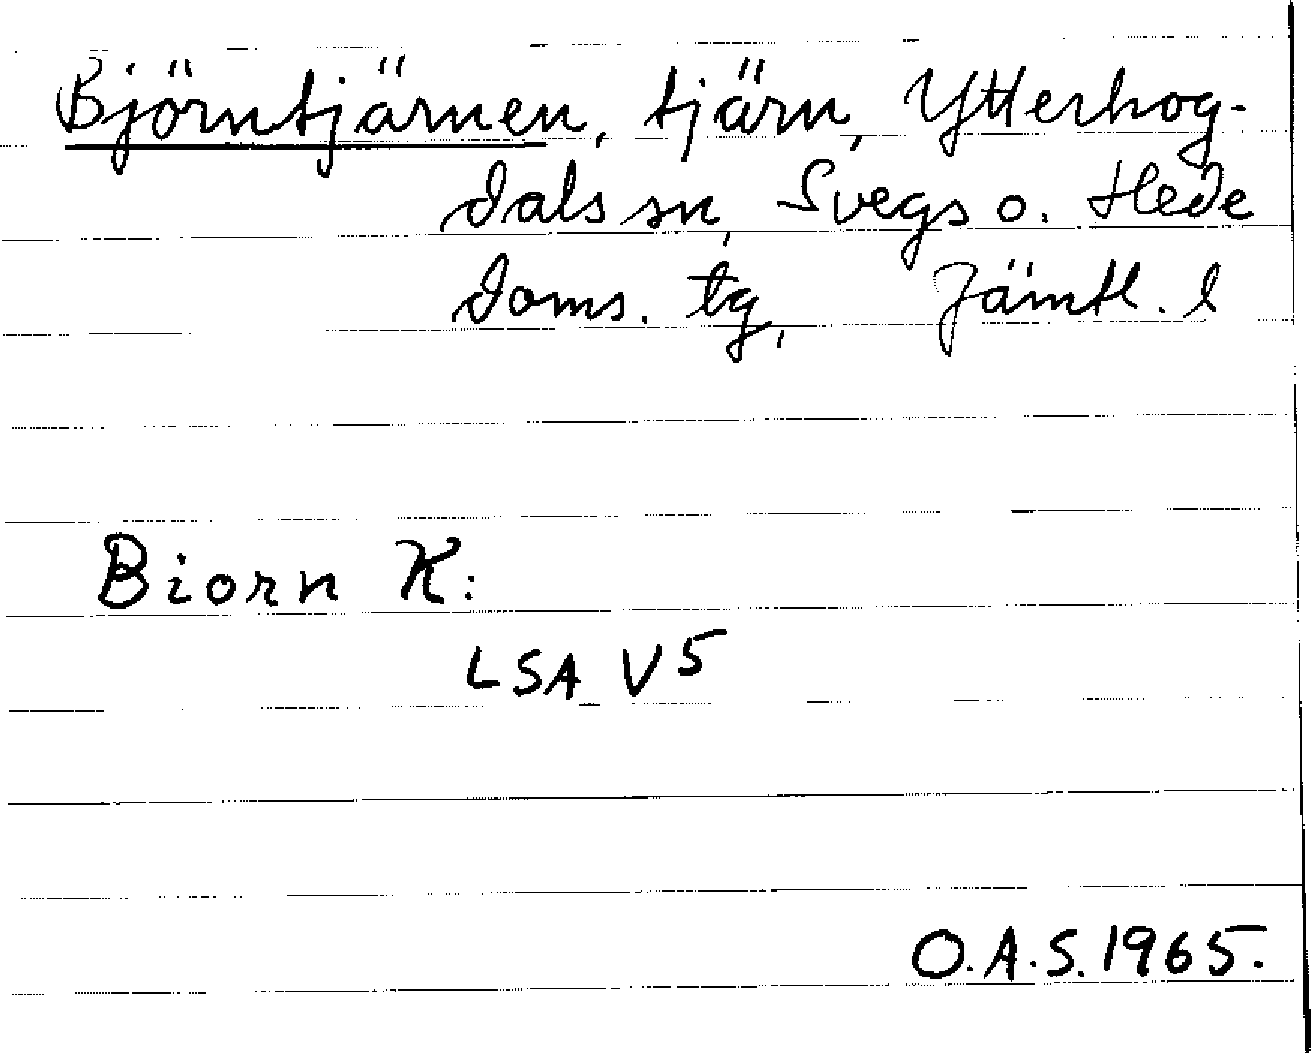 Björntjärnen, tjärn, Ytterhog-
dals sn, Svegs o. Hede
doms. tg, Jämtl. l
Biorn K:
LSA V5
O.A.S. 1965.